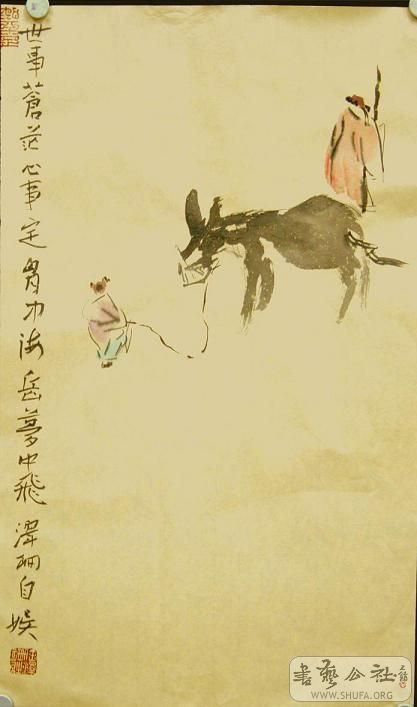 世事蒼茫心事定胷中海岳夢中飛 珊自娱
書藝公社
WWW.SHUFA.ORG